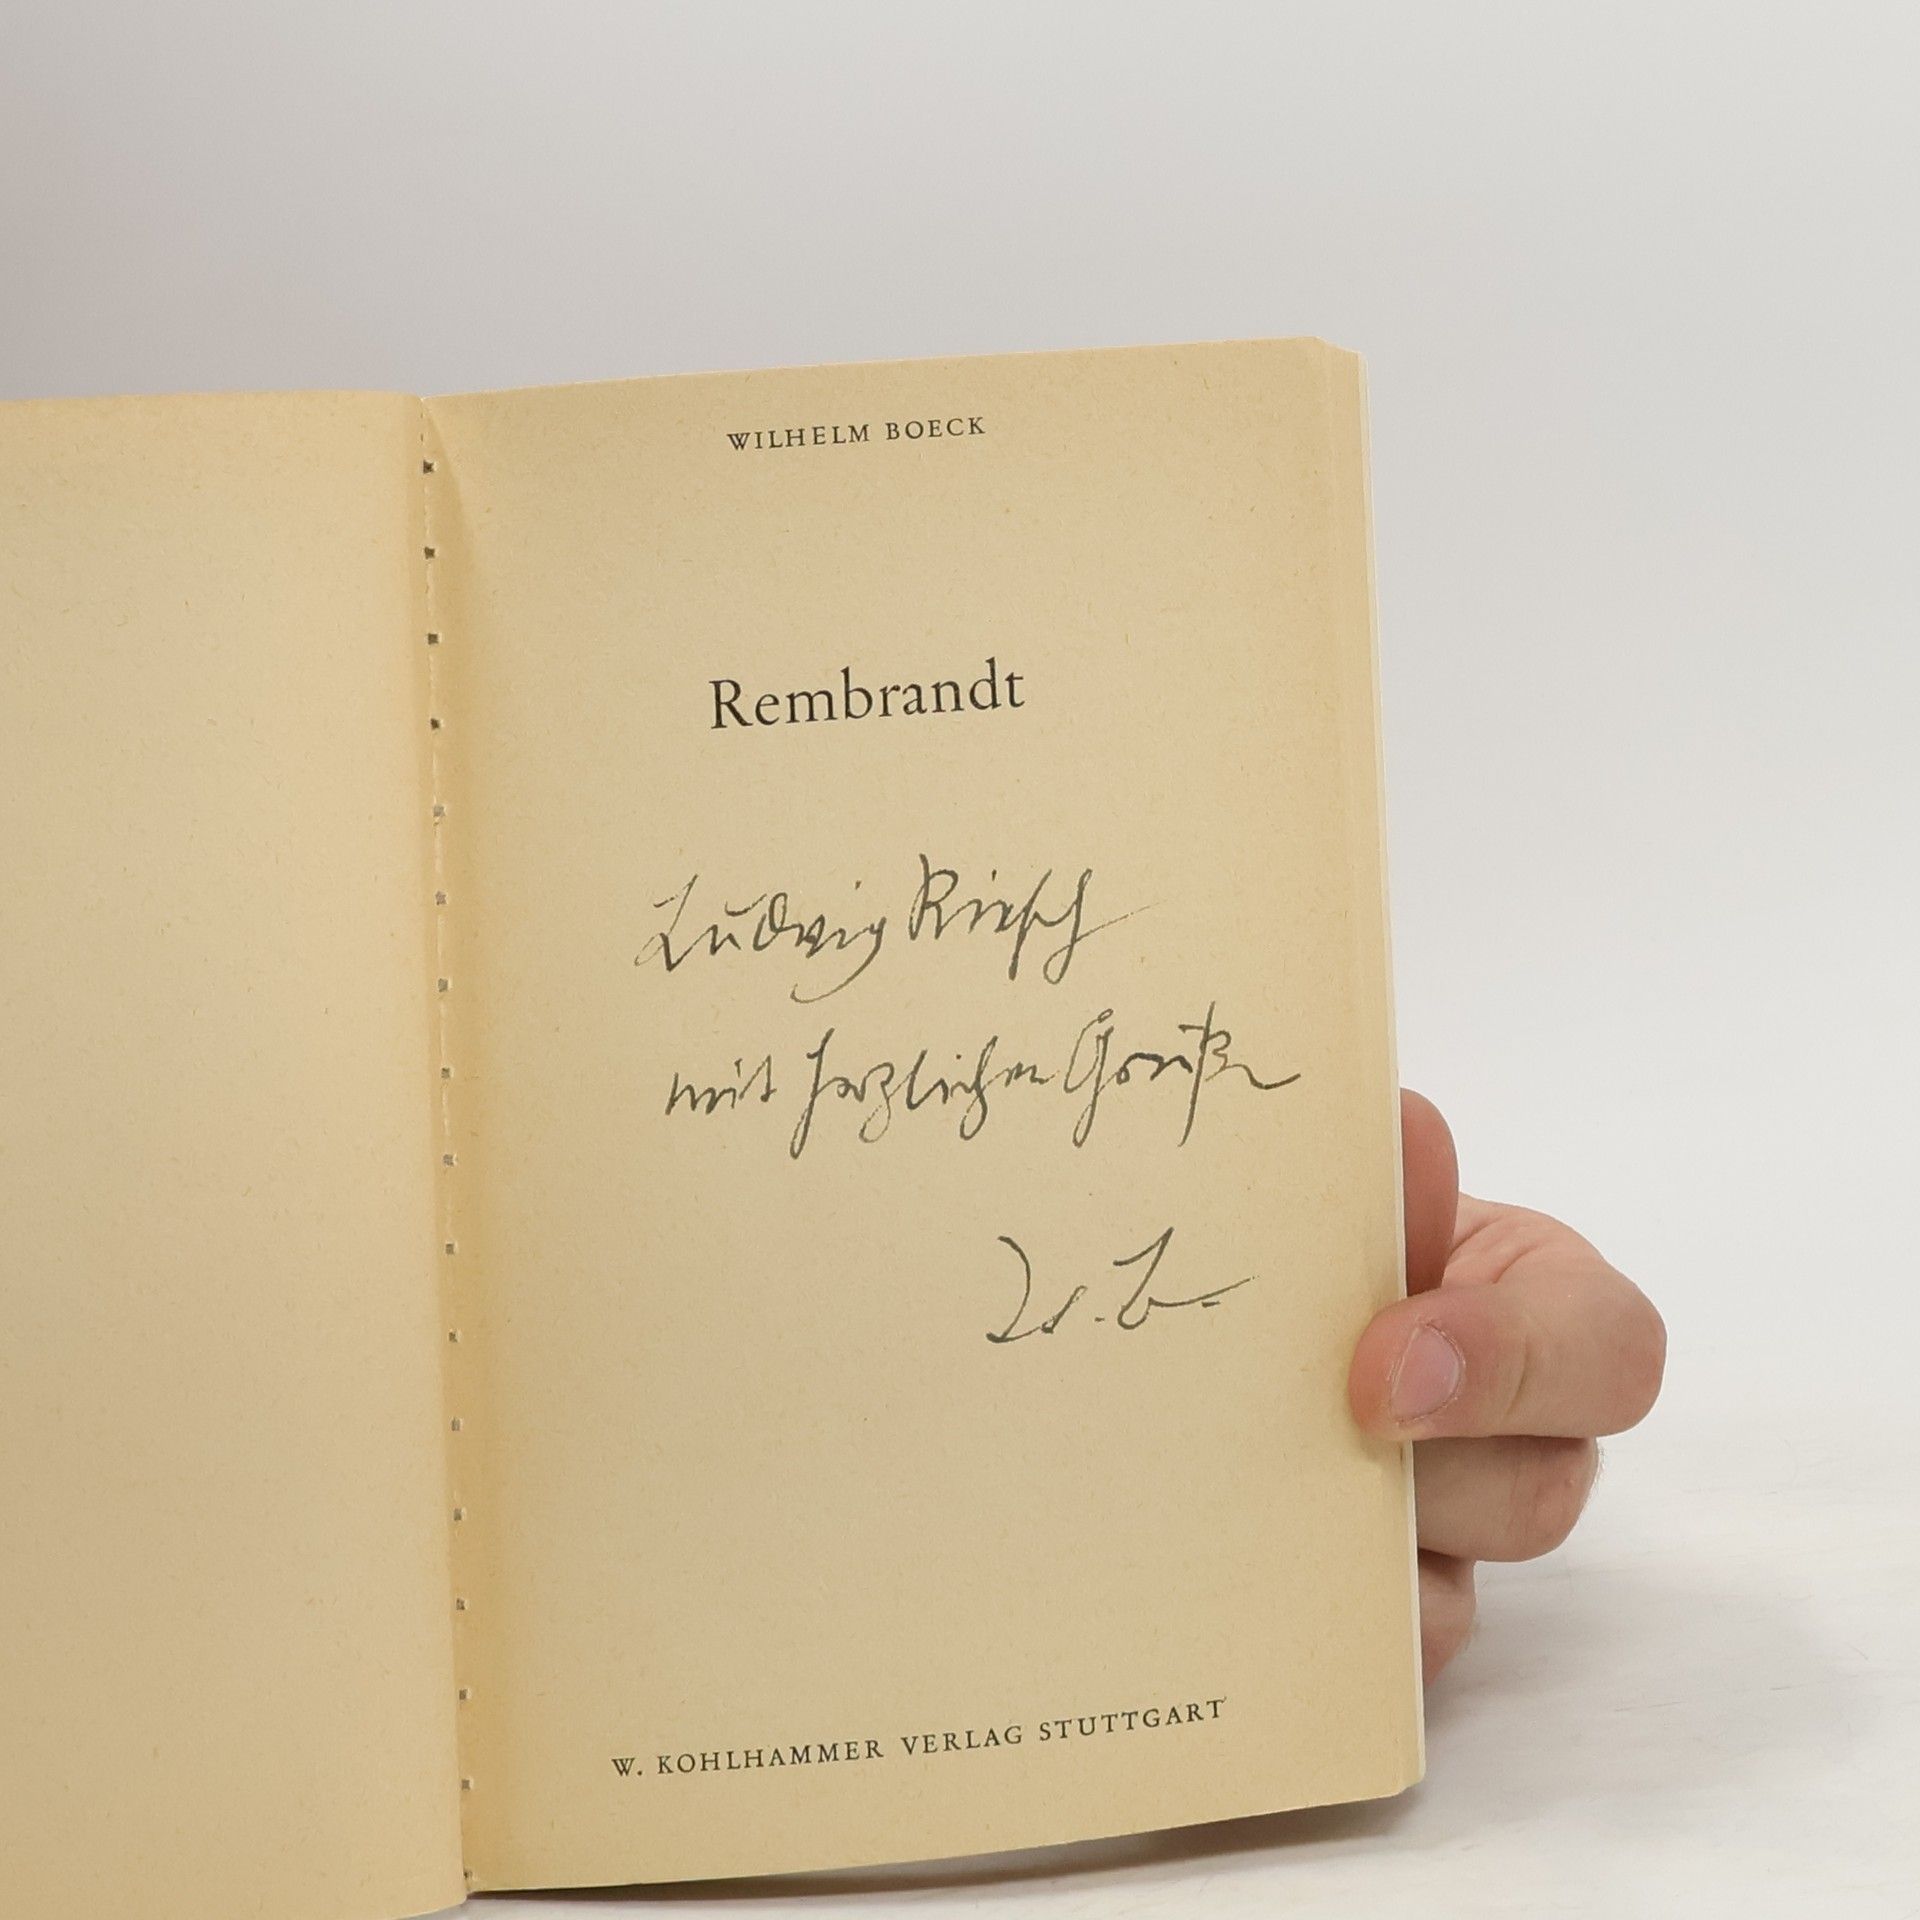 WILHELM BOECK
Rembrandt
Ludwig Riesch
mit herzlichen Grüßen
W. B.
W. KOHLHAMMER VERLAG STUTTGART